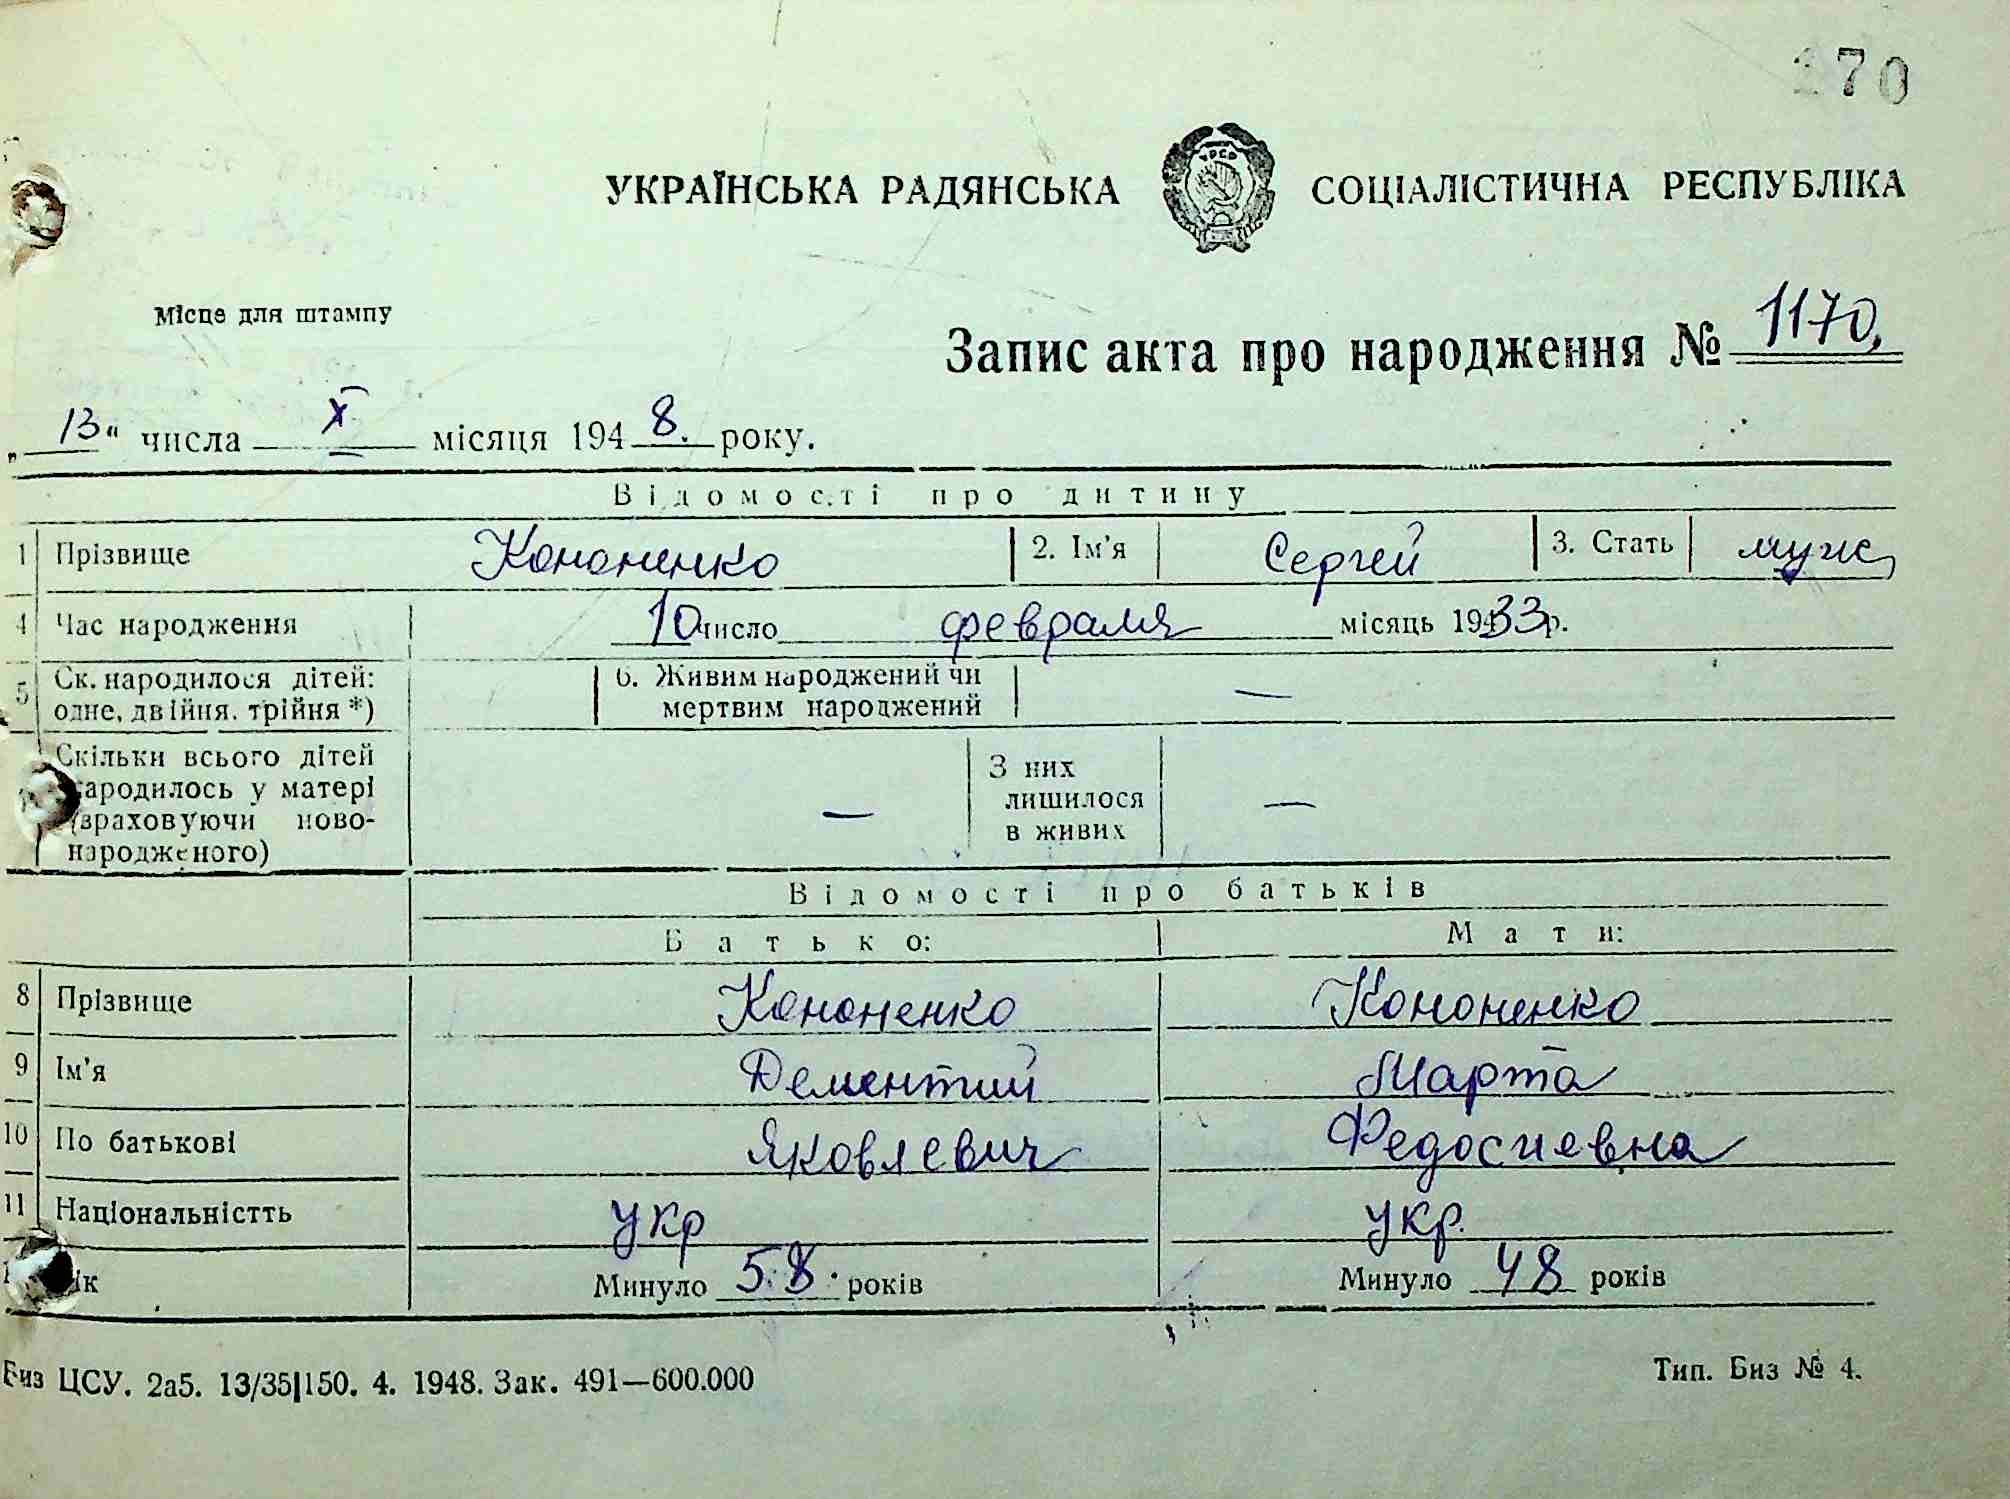 270
УКРАЇНСЬКА РАДЯНСЬКА СОЦІАЛІСТИЧНА РЕСПУБЛІКА
Місце для штампу
Запис акта про народження № 1170.
„13“ числа X місяця 1948. року.
Відомості про дитину
1 Прізвище Кононенко 2. Ім'я Сергей 3. Стать муж
4 Час народження 10 число февраля місяць 1933 р.
5 Ск. народилося дітей: одне, двійня, трійня *) 6. Живим народжений чи мертвим народжений —
Скільки всього дітей народилось у матері (враховуючи ново-народженого) — З них лишилося в живих —
Відомості про батьків
Батько: Мати:
8 Прізвище Кононенко Кононенко
9 Ім'я Дементий Марта
10 По батькові Яковлевич Федосиевна
11 Національністть укр укр.
Минуло 58 років Минуло 48 років
Биз ЦСУ. 2а5. 13/35|150. 4. 1948. Зак. 491—600.000 Тип. Биз № 4.